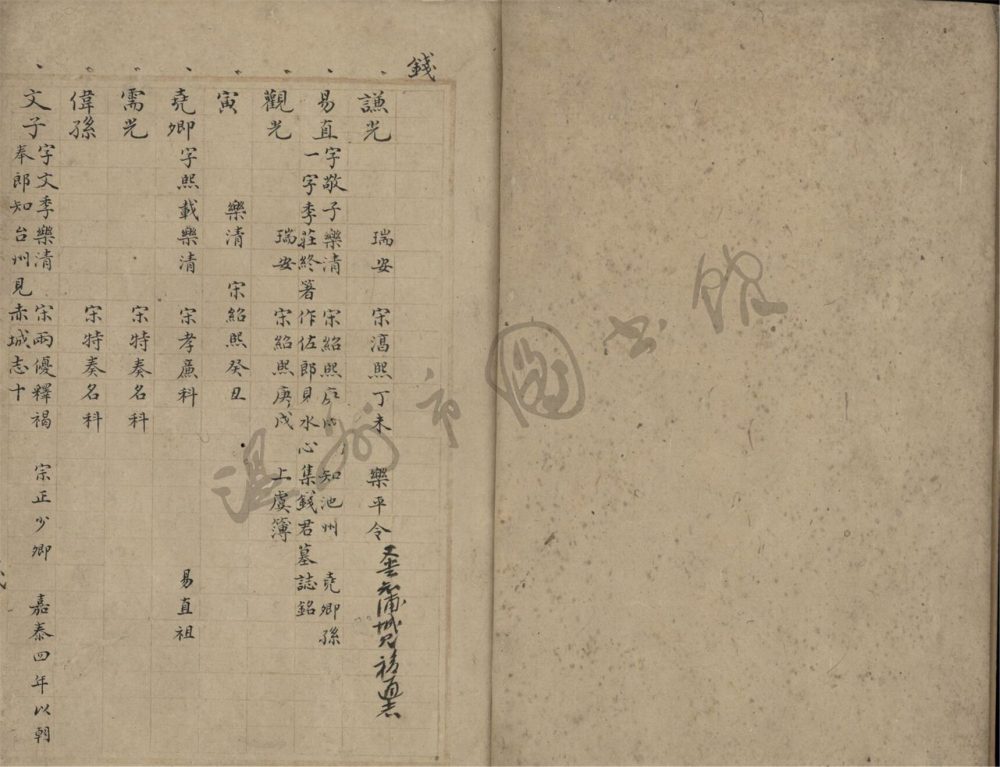 錢
謙光 瑞安 宋淳熙丁未 樂平令
易直 字敬子樂清 宋紹熙庚戌 知池州 堯卿孫
一字季莊終著作佐郎見水心集錢君墓誌銘
觀光 瑞安 宋紹熙庚戌 上虞簿
寅 樂清 宋紹熙癸丑
堯卿 字熙載樂清 宋孝廉科 易直祖
需光 宋特奏名科
偉孫 宋特奏名科
文子 字文季樂清 宋兩優釋褐 宗正少卿 嘉泰四年以朝
奉郎知台州見赤城志十
溫州市圖書館